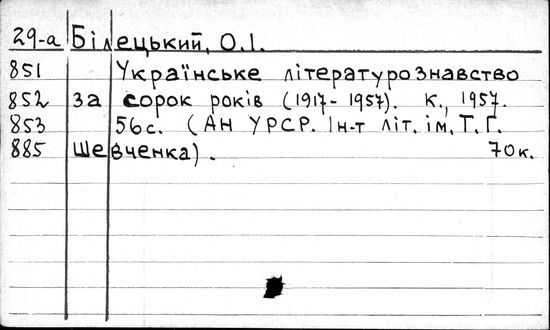 29-а Білецький, О.І.
851 Українське літературознавство
852 за сорок років (1917-1957). К., 1957.
853 56с. (АН УРСР. Ін-т літ. ім. Т.Г.
885 Шевченка). 70к.